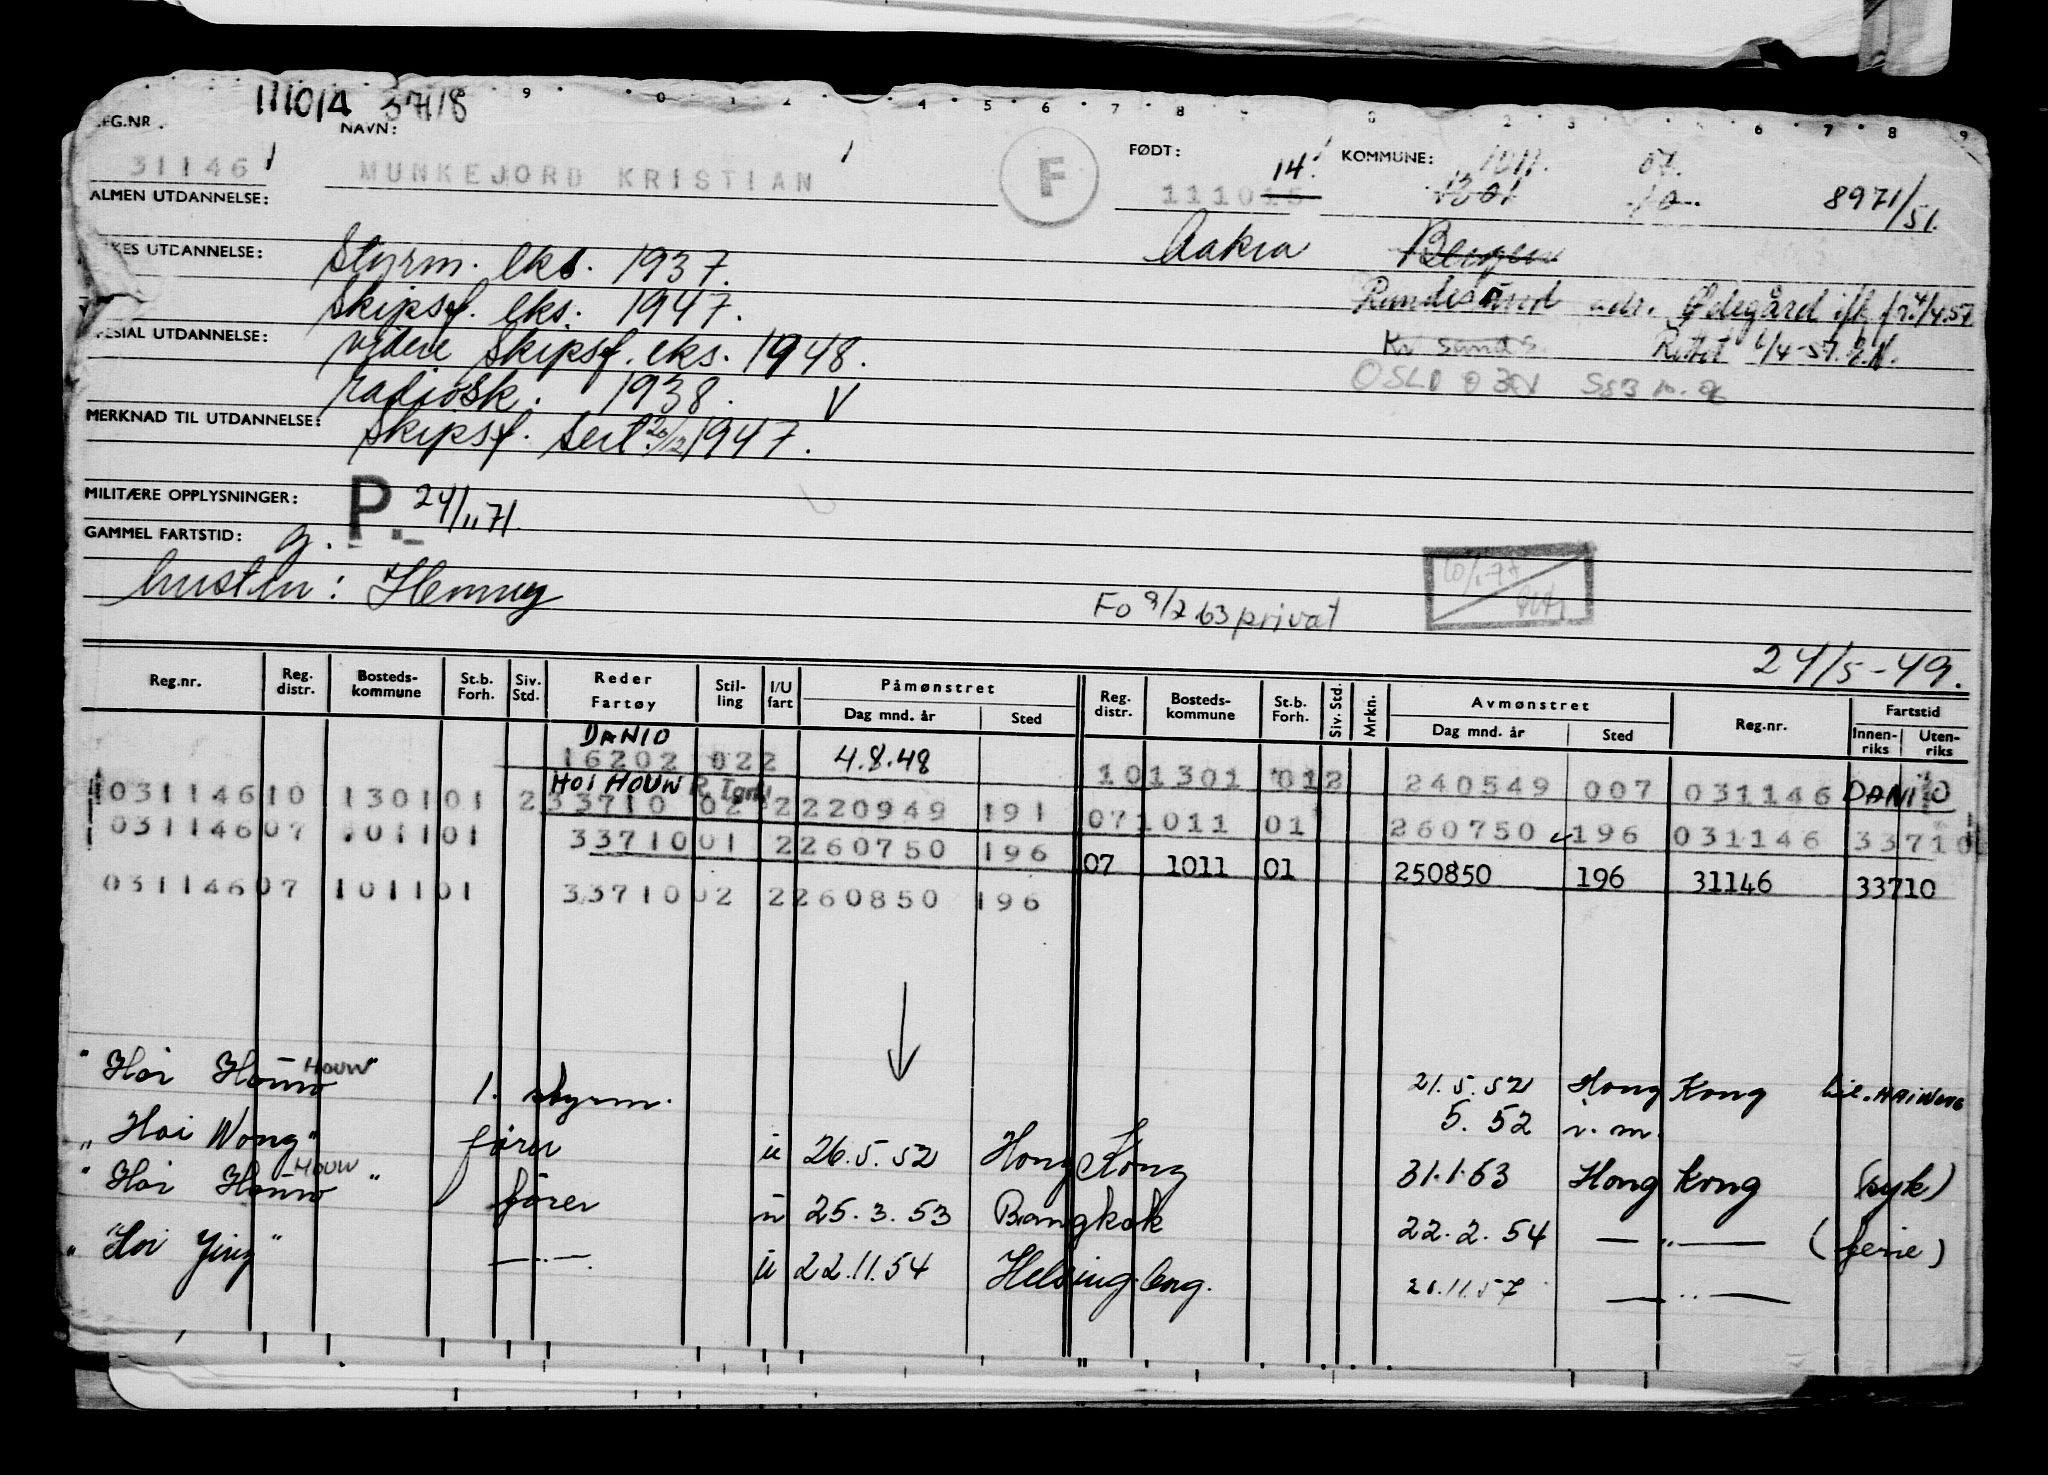 111014 37118
REG.NR. NAVN: FØDT: KOMMUNE:
31146 MUNKEJORD KRISTIAN F 14. 111015 1011. 1301 07. 10 8971/51.
ALMEN UTDANNELSE:
Aakra Bergen
YRKES UTDANNELSE: Styrm. eks. 1937.
Skipsf. eks. 1947. adr. Ødegård
SPESIAL UTDANNELSE: videre Skipsf. eks. 1948. Kr sands. Rettet 6/4-57.
radiosk. 1938. V OSLO
MERKNAD TIL UTDANNELSE: Skipsf. sert 20/12 1947.
MILITÆRE OPPLYSNINGER: P. 24/11 71.
GAMMEL FARTSTID: g.
hustru: Henny
Fo 9/2 63 privat
24/5-49.
Reg.nr. Reg. distr. Bosteds-kommune St.b. Forh. Siv. Std. Reder Fartøy Stil-ling I/U fart Påmønstret Dag mnd. år Sted Reg. distr. Bosteds-kommune St.b. Forh. Siv. Std. Mrkn. Avmønstret Dag mnd. år Sted Reg.nr. Fartstid Innen-riks Uten-riks
DANIO
16202 022 4.8.48 101301 012 240549 007 031146 DANIO
HOI HOUW
031146 10 1301 01 2 33710 02 2 220949 191 07 1011 01 260750 196 031146 33710
031146 07 1011 01 33710 01 2 260750 196 07 1011 01 250850 196 31146 33710
031146 07 1011 01 33710 02 2 260850 196
"Hoi Houw" HOUW 1. styrm. 21.5.52 Hong Kong til. HAI WONG
"Hoi Wong" fører u 26.5.52 Hong Kong 5. 52
"Hoi Houw" HOUW fører u 25.3.53 Bangkok 31.1.53 Hong Kong (syk)
"Hoi Ying" —"— u 22.11.54 Helsingborg. 22.2.54 —"— (ferie)
21.11.57 —"—